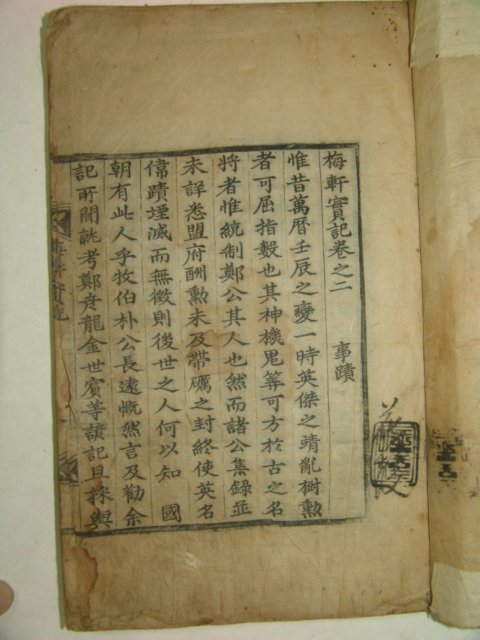 梅軒實記卷之二　事蹟
惟昔萬曆壬辰之變一時英傑之靖亂樹勲
者可屈指數也其神機鬼筭可方於古之名
將者惟統制鄭公其人也然而諸公集錄並
未詳悉盟府酬勲未及帶礪之封終使英名
偉蹟堙滅而無徵則後世之人何以知　國
朝有此人乎牧伯朴公長遠慨然言及勸余
記所聞誂考鄭彦龍金世賓等諺記且採輿
梅軒實記